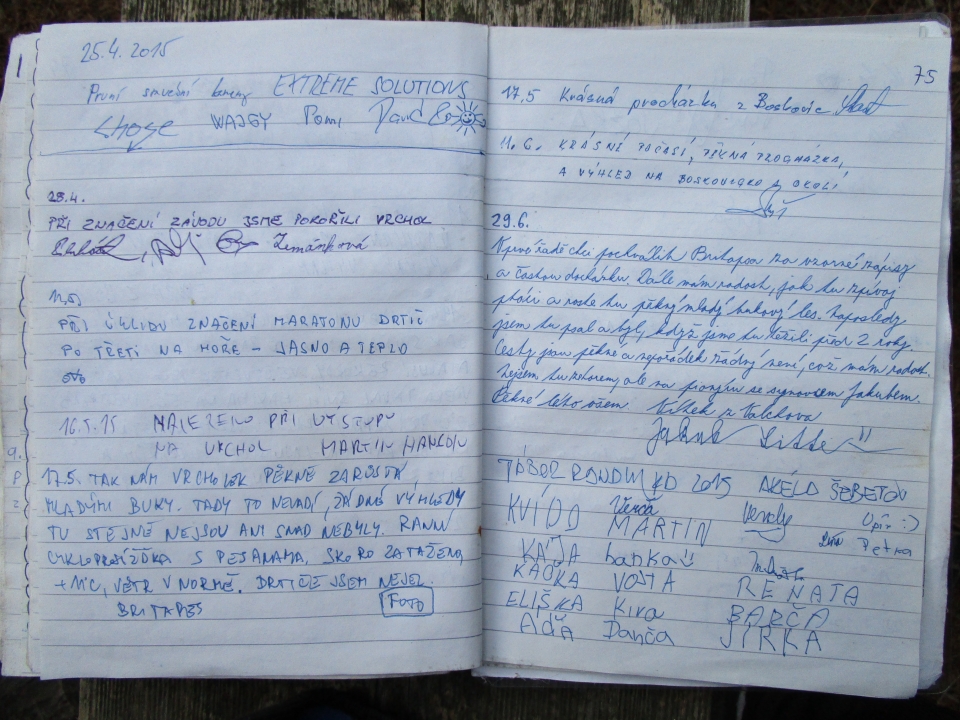 25.4. 2015
První EXTREME SOLUTIONS
WAJGY Pomi David
25.4.
PŘI ZNAČENÍ ZÁVODU JSME POKOŘILI VRCHOL
Zemánková
PŘI ÚKLIDU ZNAČENÍ MARATONU DRTIČ
PO TŘETÍ NA HOŘE – JASNO A TEPLO
16.5.15 NALEZENO PŘI VÝSTUPU
NA VRCHOL MARTIN
17.5. TAK NÁM VRCHOLEK PĚKNĚ ZARŮSTÁ
MLADÝMI BUKY. TADY TO NEVADÍ, ŽÁDNÉ VÝHLEDY
TU STEJNĚ NEJSOU ANI SNAD NEBYLY. RANNÍ
CYKLOPROJÍŽĎKA S PESANAMA, SKORO ZATAŽENO,
VÍTR V NORMĚ. DRTIČE JSEM NEJEL.
BRITAPES FOTO
75
17.5 Krásná procházka z Boskovic
11.6. KRÁSNÉ POČASÍ, PĚKNÁ PROCHÁZKA,
A VÝHLED NA BOSKOVICKO A OKOLÍ
29.6.
Nejprve chci pochválit Britapsa za vzorné zápisy
a častou docházku. Dále mám radost, jak tu zpívají
ptáci a roste tu pěkný mladý bukový les. Naposledy
jsem tu psal a byl, když jsme tu těžili před 2 roky.
Cesty jsou pěkné a nepořádek žádný není, což mám radost.
Nejsem tu za synovcem Jakubem.
Pěkné léto všem z Valchova
Jakub
TÁBOR RONDW KD 2015 AKÉLA ŠEBETOV
KVÍDO Verča Verody Upír :)
MARTIN Petra
KÁJA banka
KAČKA VOJTA RENATA
ELIŠKA Kira BARČA
AĎA Danča JIRKA